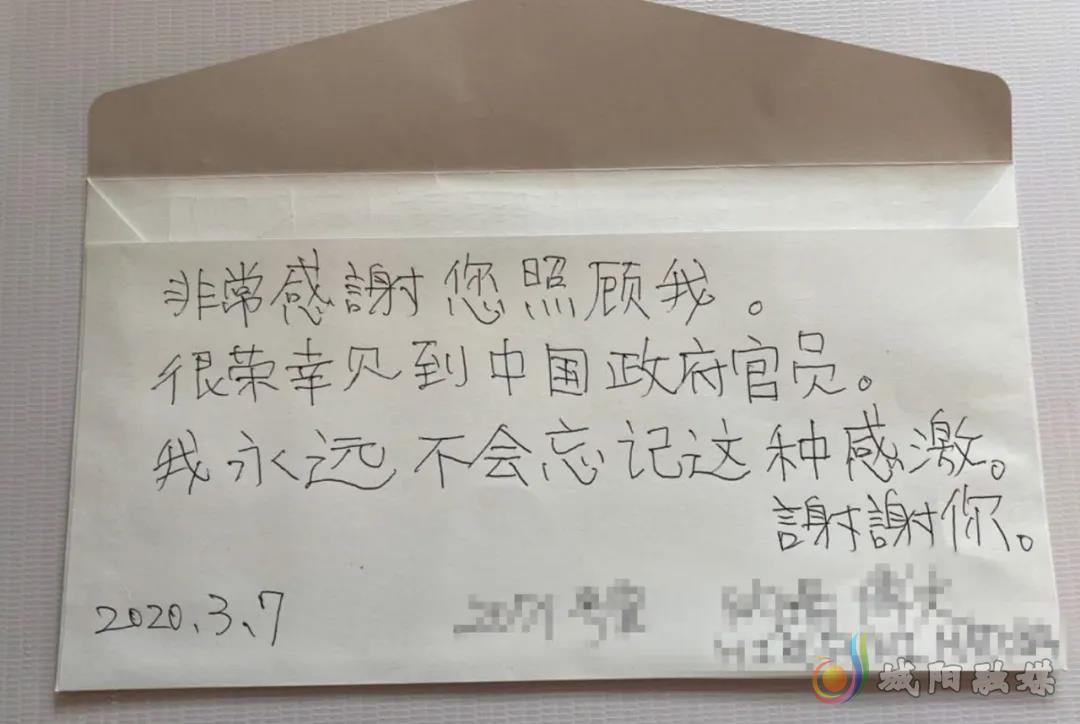 非常感謝您照顾我。
很荣幸见到中国政府官员。
我永远不会忘记这种感激。
謝謝你。
2020.3.7
城阳融媒